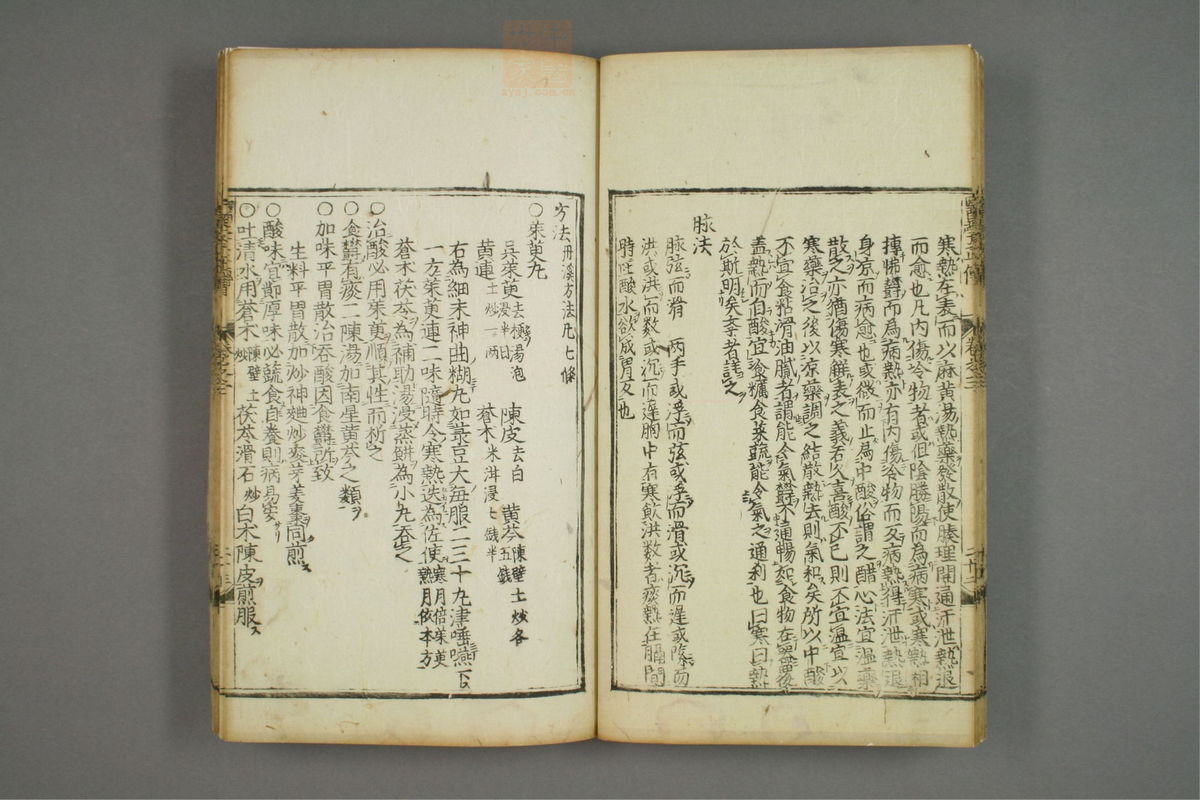 寒熱在表而以麻黄湯熱藥發散使腠理開通汗泄熱退
而愈也凡内傷冷物者或但陰勝陽而為病寒或寒熱相
搏怫欝而為病熱亦有内傷冷物而反病熱得汗泄熱退
身凉而病愈也或微而止為中酸俗謂之醋心法宜温藥
散之亦猶傷寒觧表之義若久喜酸不已則不宜温宜以
寒藥治之後以凉藥調之結散熱去則氣和矣所以中酸
不宜食粘滑油膩者謂能令氣欝不通暢如食物在器覆
蓋熱而自酸宜飡糲食菜蔬能令氣之通利也曰寒曰熱
於斯明矣李者詳之
脉法
脉弦而滑 两手或浮而弦或浮而滑或沉而遲或
洪或洪而数或沉而遲胸中有寒飲洪数者痰熱在膈間
時吐酸水欲成胃反也
方法丹溪方法凡七條
○茱萸丸
呉茱萸去梗湯泡浸半日 陳皮去白 黄芩陳壁土炒各五錢
黄連土炒一两 蒼木米泔浸七錢半
右為細末神曲糊丸如菉豆大毎服二三十丸津唾嚥下
一方茱萸連二味隨時令寒熱迭為佐使寒月倍茱萸熱月依本方
蒼木茯苓為補助湯浸蒸餅為小丸吞之
○治酸必用茱萸順其性而折之
○食欝有痰二陳湯加南星黄芩之類
○加味平胃散治吞酸因食欝所致
生料平胃散加炒神麯炒麦芽姜棗同煎
○酸味宜節厚味必蔬食自養則病易安
○吐清水用蒼木陳壁土炒茯苓滑石炒白木陳皮煎服